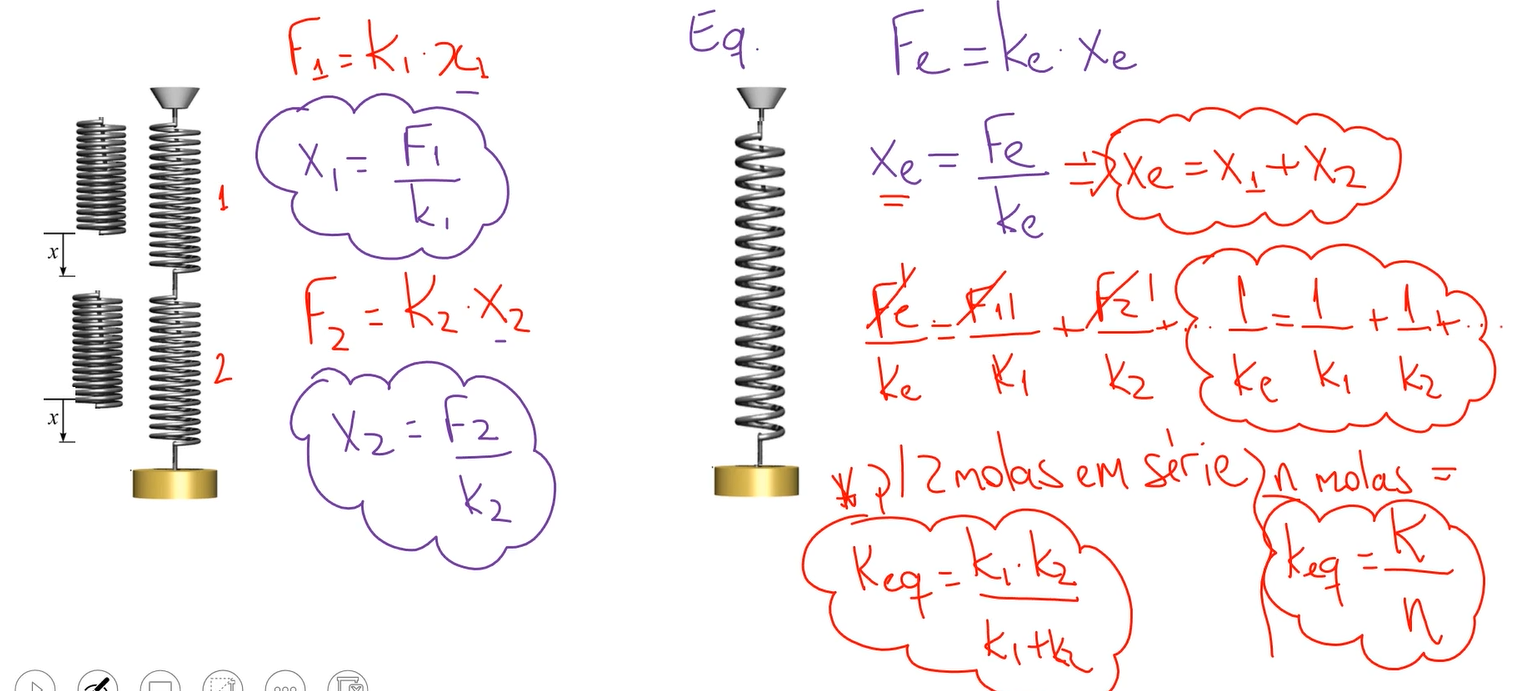 F₁ = K₁ · x₁
x₁ = F₁ / k₁
1
x
F₂ = K₂ · x₂
2
x
x₂ = F₂ / k₂
Eq.
Fe = ke · xe
xe = Fe / ke ⇒ xe = x₁ + x₂
Fe / ke = F₁ / k₁ + F₂ / k₂ + ...
1 / ke = 1 / k₁ + 1 / k₂ + ...
* p/ 2 molas em série
Keq = k₁ · k₂ / k₁ + k₂
n molas =
keq = K / n